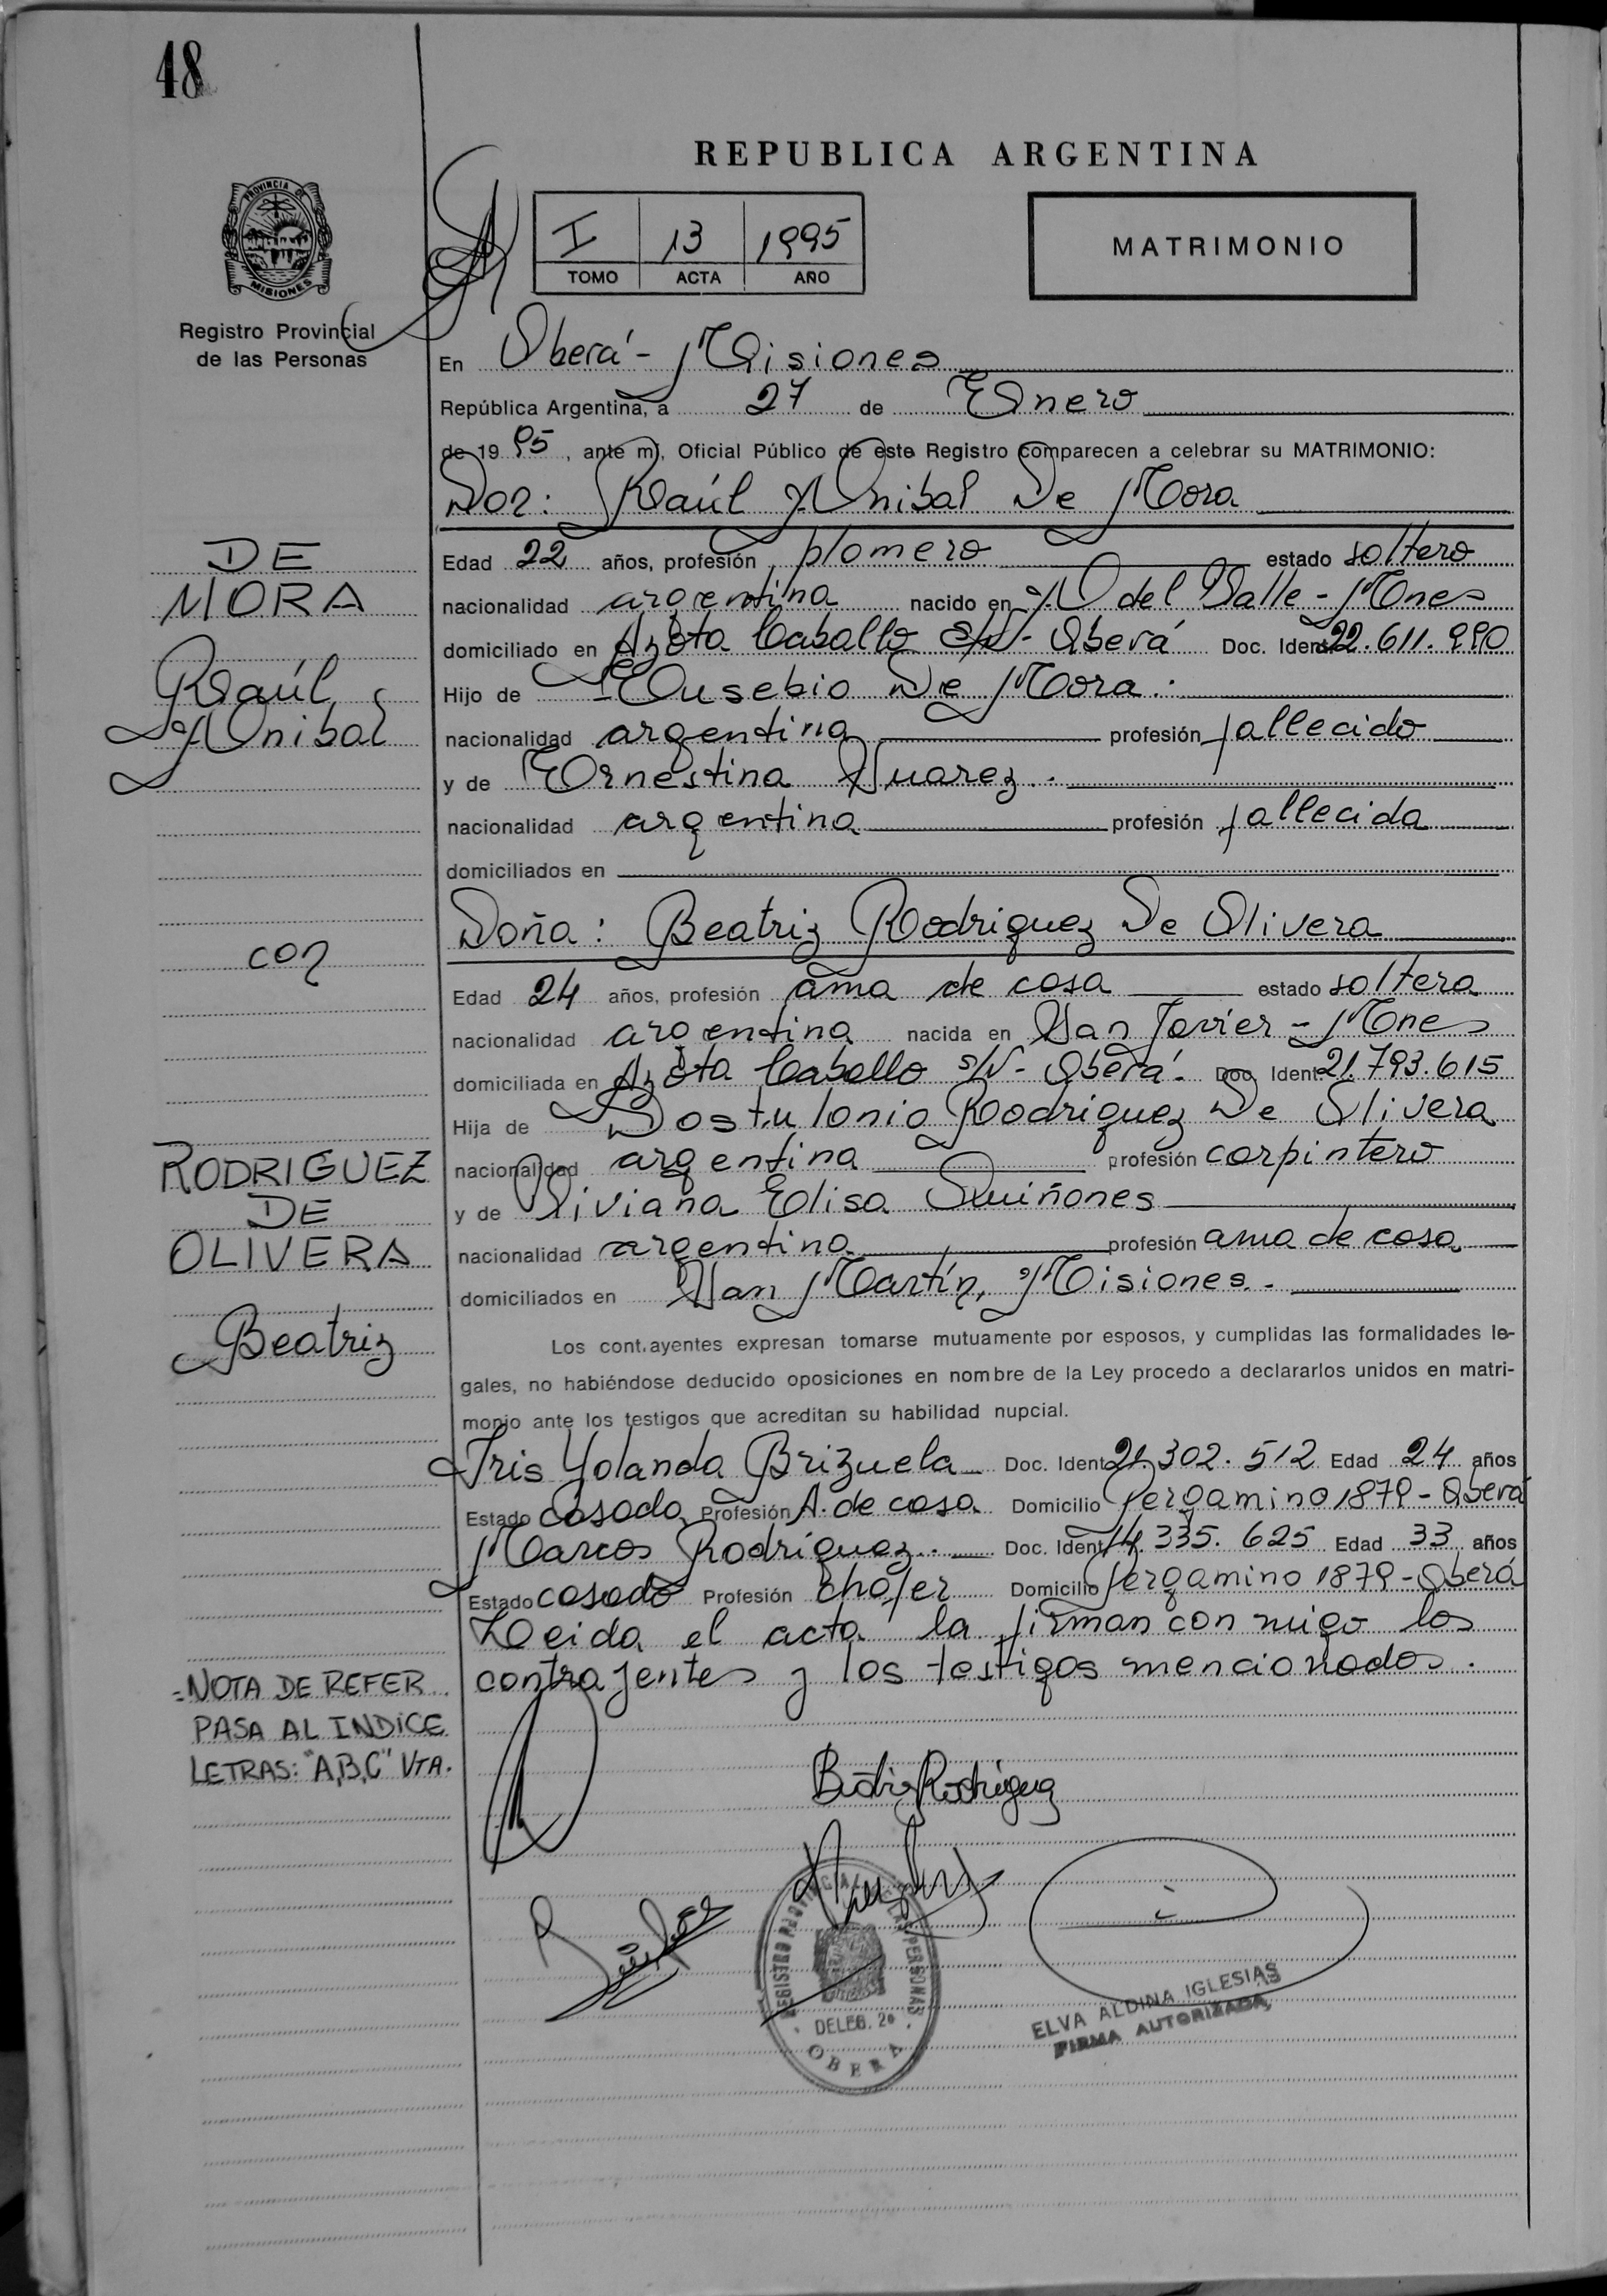 48
REPUBLICA ARGENTINA
PROVINCIA DE
MISIONES
Registro Provincial
de las Personas
I 13 1995
TOMO ACTA AÑO
MATRIMONIO
En Oberá - Misiones
República Argentina, a 27 de Enero
de 1995, ante mí, Oficial Público de este Registro comparecen a celebrar su MATRIMONIO:
Don: Raúl Anibal De Mora
Edad 22 años, profesión plomero estado soltero
nacionalidad argentina nacido en A del Valle - Mnes
domiciliado en Azota Caballo S/N - Oberá Doc. Ident. 22.611.990
Hijo de Eusebio De Mora.
nacionalidad argentina profesión fallecido
y de Ernestina Suarez.
nacionalidad argentina profesión fallecida
domiciliados en
Doña: Beatriz Rodriguez De Olivera
Edad 24 años, profesión ama de casa estado soltera
nacionalidad argentina nacida en San Javier - Mnes
domiciliada en Azota Caballo S/N - Oberá. Doc. Ident. 21.793.615
Hija de Postulonio Rodriguez De Olivera
nacionalidad argentina profesión carpintero
y de Viviana Elisa Quiñones
nacionalidad argentina profesión ama de casa
domiciliados en San Martín, Misiones.-
Los cont.ayentes expresan tomarse mutuamente por esposos, y cumplidas las formalidades le-
gales, no habiéndose deducido oposiciones en nombre de la Ley procedo a declararlos unidos en matri-
monio ante los testigos que acreditan su habilidad nupcial.
Iris Yolanda Brizuela Doc. Ident. 21.302.512 Edad 24 años
Estado casada Profesión A. de casa Domicilio Pergamino 1879 - Oberá
Marcos Rodriguez.- Doc. Ident. 14.335.625 Edad 33 años
Estado casado Profesión chofer Domicilio Pergamino 1879 - Oberá
Leida el acta la firman con migo los
contrayentes y los testigos mencionados.
DE
MORA
Raúl
Anibal
con
RODRIGUEZ
DE
OLIVERA
Beatriz
=NOTA DE REFER
PASA AL INDICE
LETRAS: "A,B,C" VTA.
Beatriz Rodriguez
REGISTRO PROVINCIAL DE LAS PERSONAS
DELEG. 2a
OBERA
ELVA ALDINA IGLESIAS
FIRMA AUTORIZADA